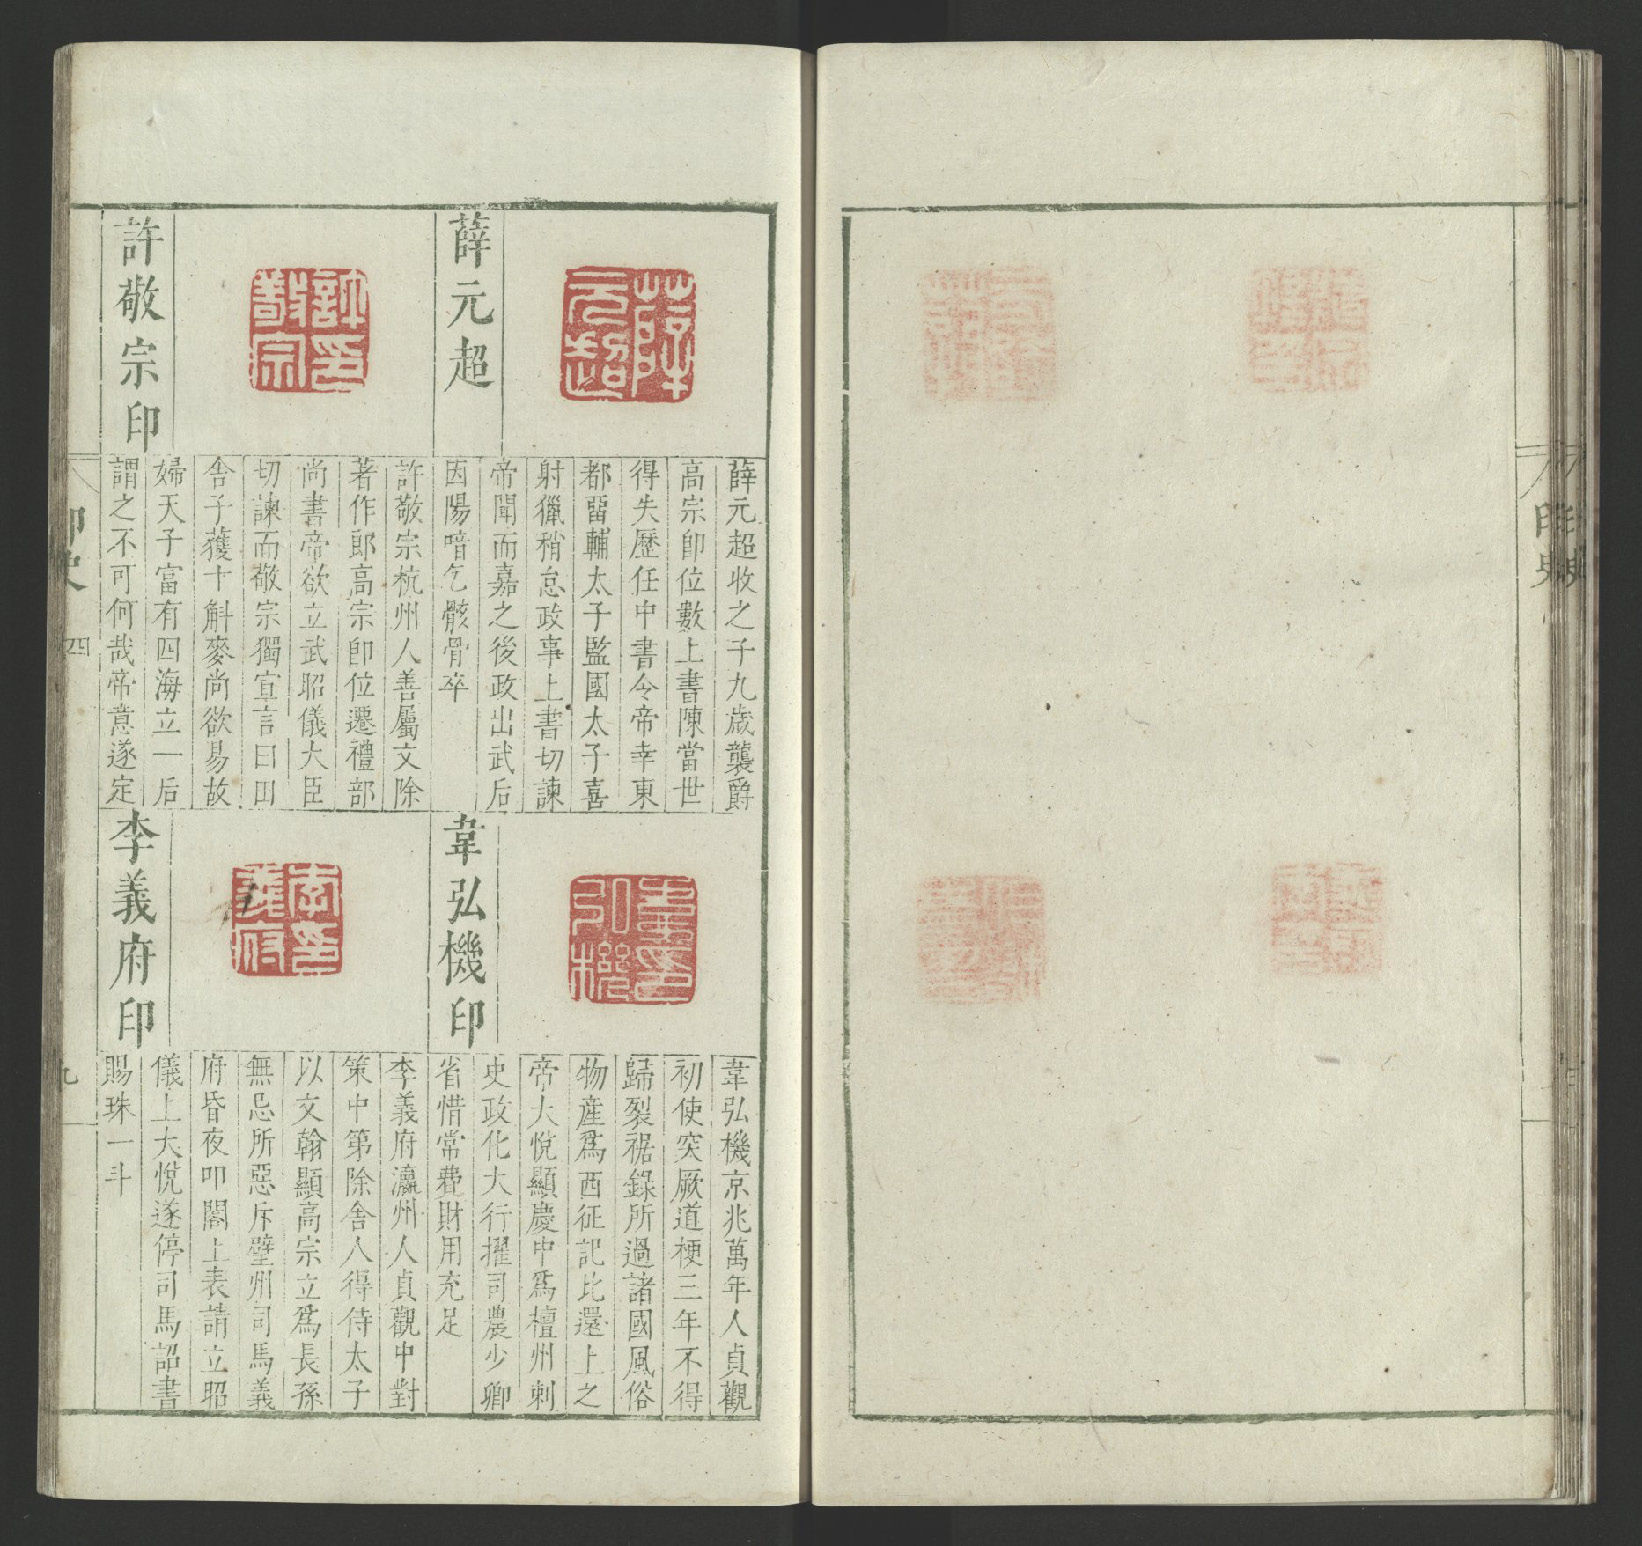 薛元超
薛元超收之子九歲襲爵
高宗卽位數上書陳當世
得失歷任中書令帝幸東
都留輔太子監國太子喜
射獵稍怠政事上書切諫
帝聞而嘉之後政出武后
因陽喑乞骸骨卒
許敬宗印
許敬宗杭州人善屬文除
著作郎高宗卽位遷禮部
尚書帝欲立武昭儀大臣
切諫而敬宗獨宣言曰田
舍子穫十斛麥尚欲易故
婦天子富有四海立一后
謂之不可何哉帝意遂定
韋弘機印
韋弘機京兆萬年人貞觀
初使突厥道梗三年不得
歸裂裾錄所過諸國風俗
物產爲西征記比還上之
帝大悅顯慶中爲檀州刺
史政化大行擢司農少卿
省惜常費財用充足
李義府印
李義府瀛州人貞觀中對
策中第除舍人得侍太子
以文翰顯高宗立爲長孫
無忌所惡斥壁州司馬義
府昏夜叩閤上表請立昭
儀上大悅遂停司馬詔書
賜珠一斗
印史
四
九